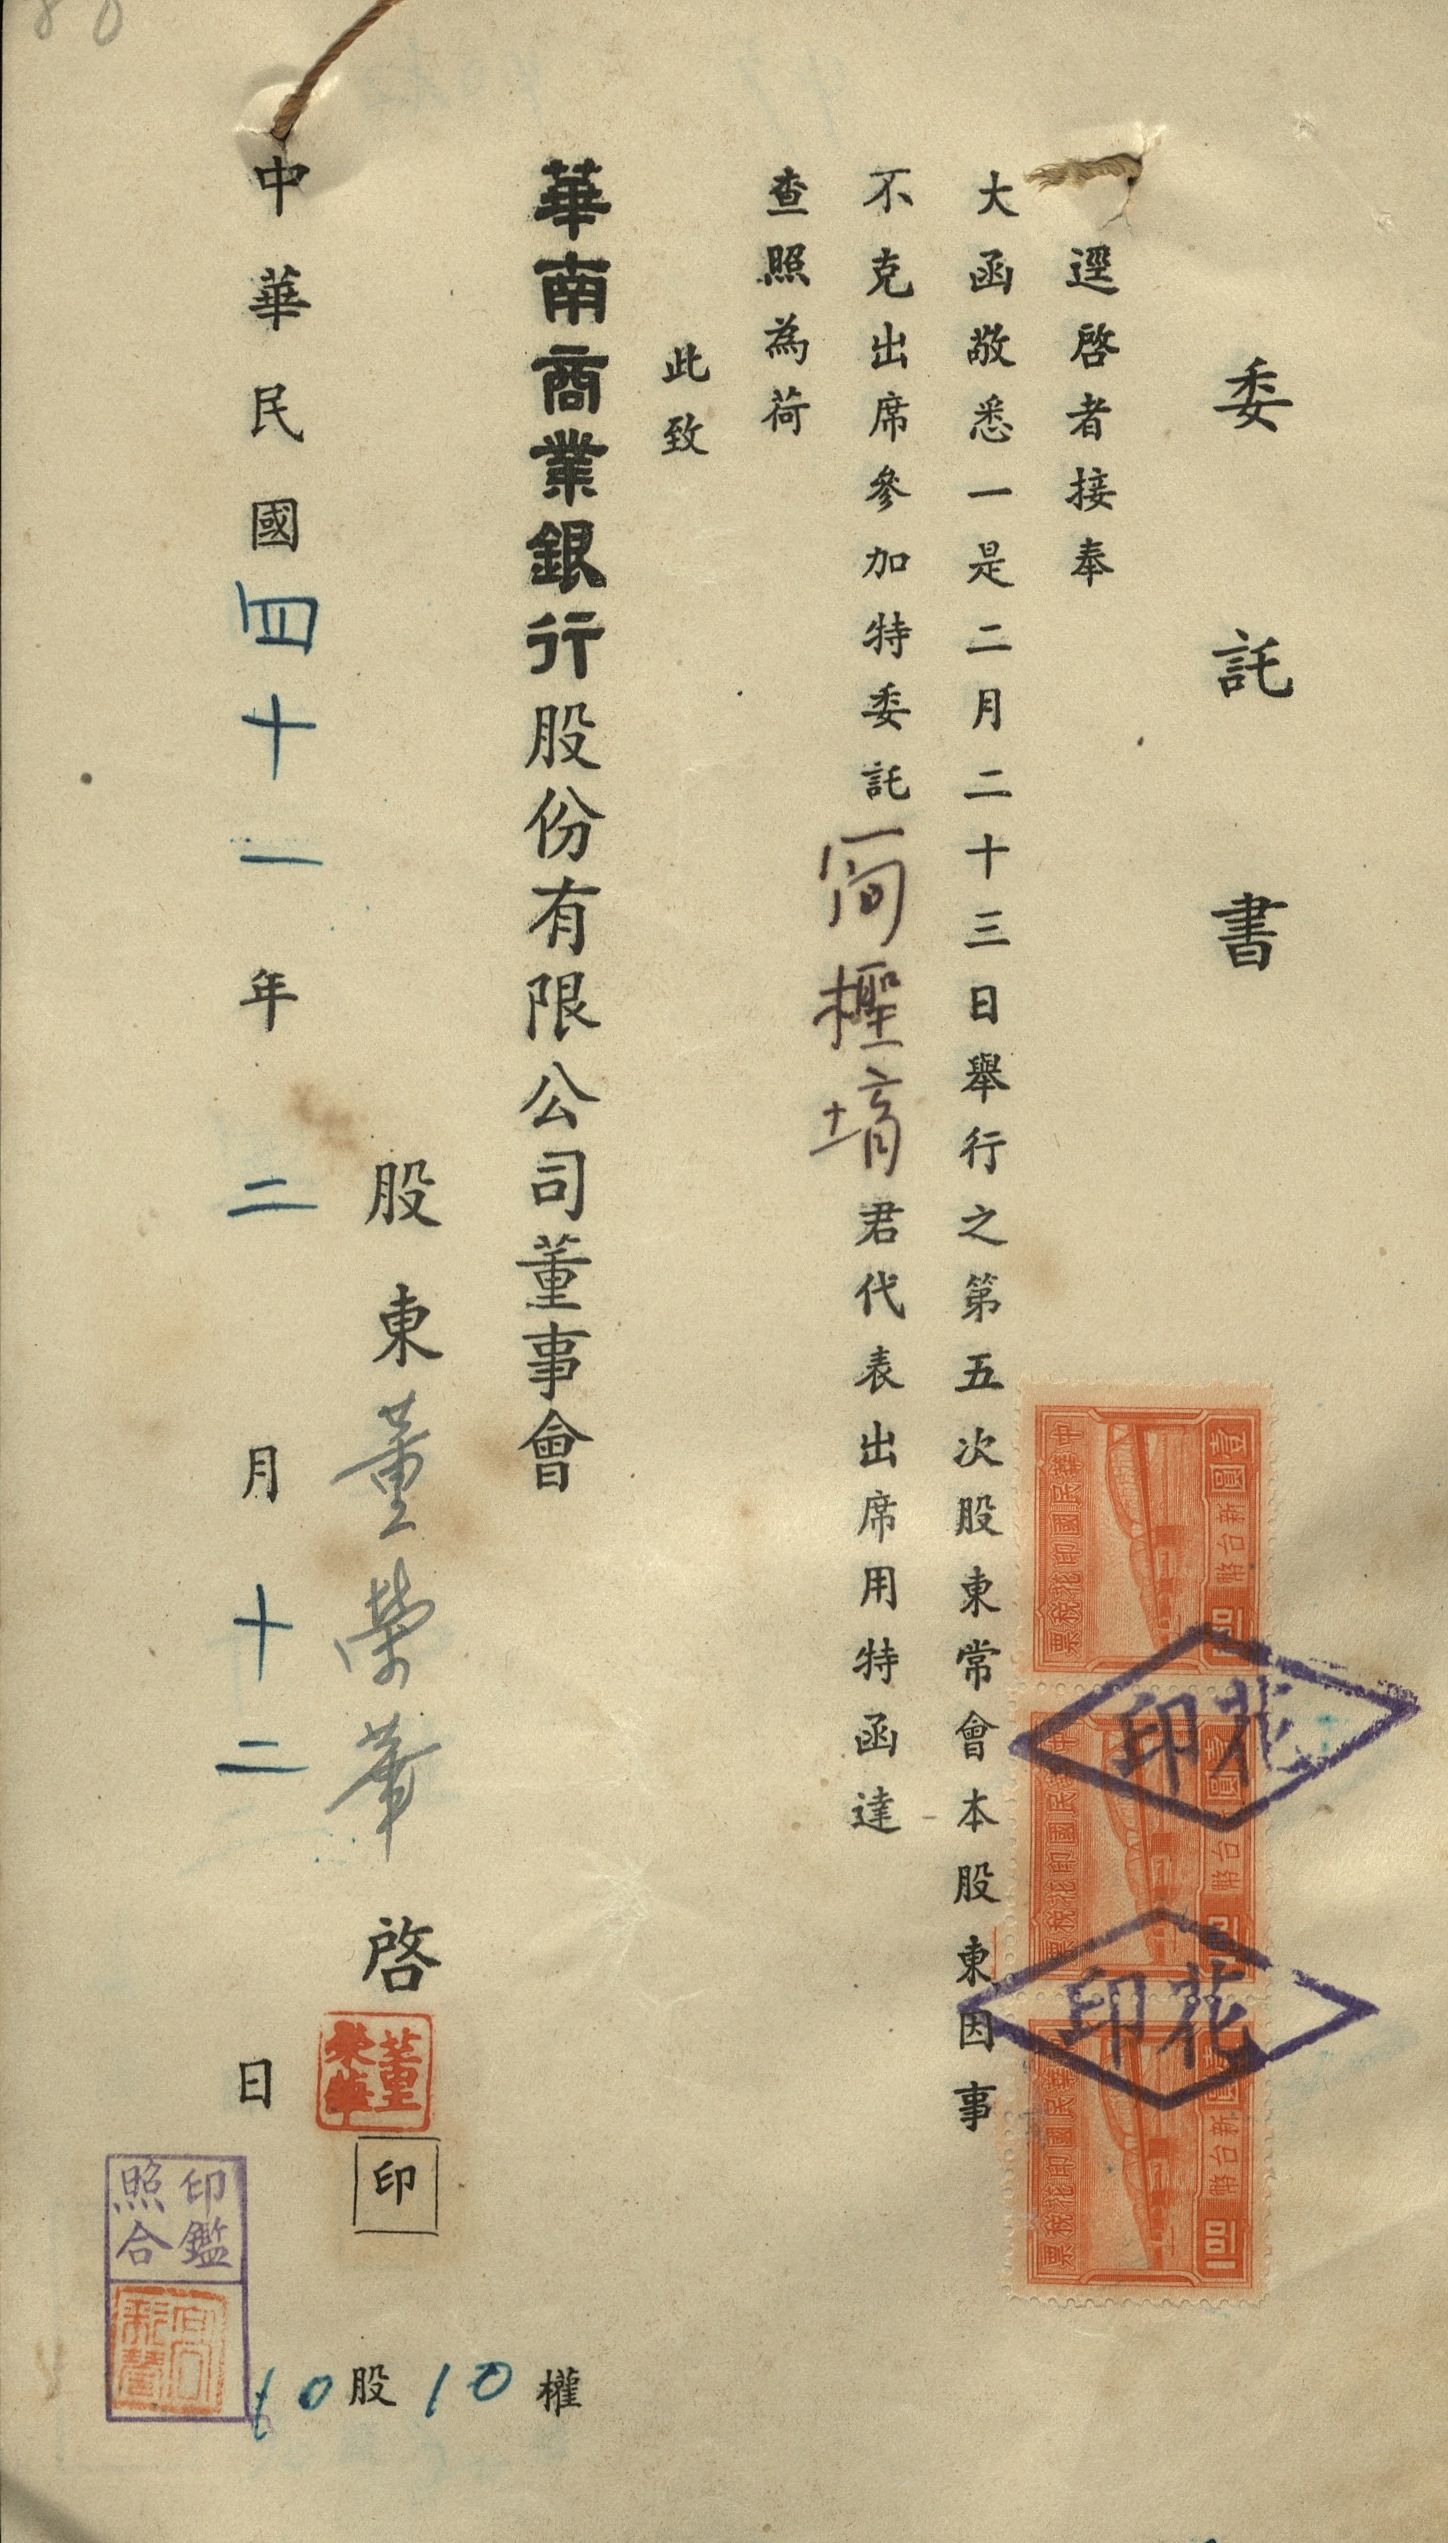 委託書
逕啓者接奉
大函敬悉一是二月二十三日舉行之第五次股東常會本股東因事
不克出席參加特委託簡檉堉君代表出席用特函達
查照為荷
此致
華南商業銀行股份有限公司董事會
股東董榮華啓
董榮華
印
中華民國四十一年二月十二日
10股10權
印鑑
照合
中華民國印花稅票
壹圓
新台幣
100
花印
中華民國印花稅票
壹圓
新台幣
花印
中華民國印花稅票
壹圓
新台幣
100